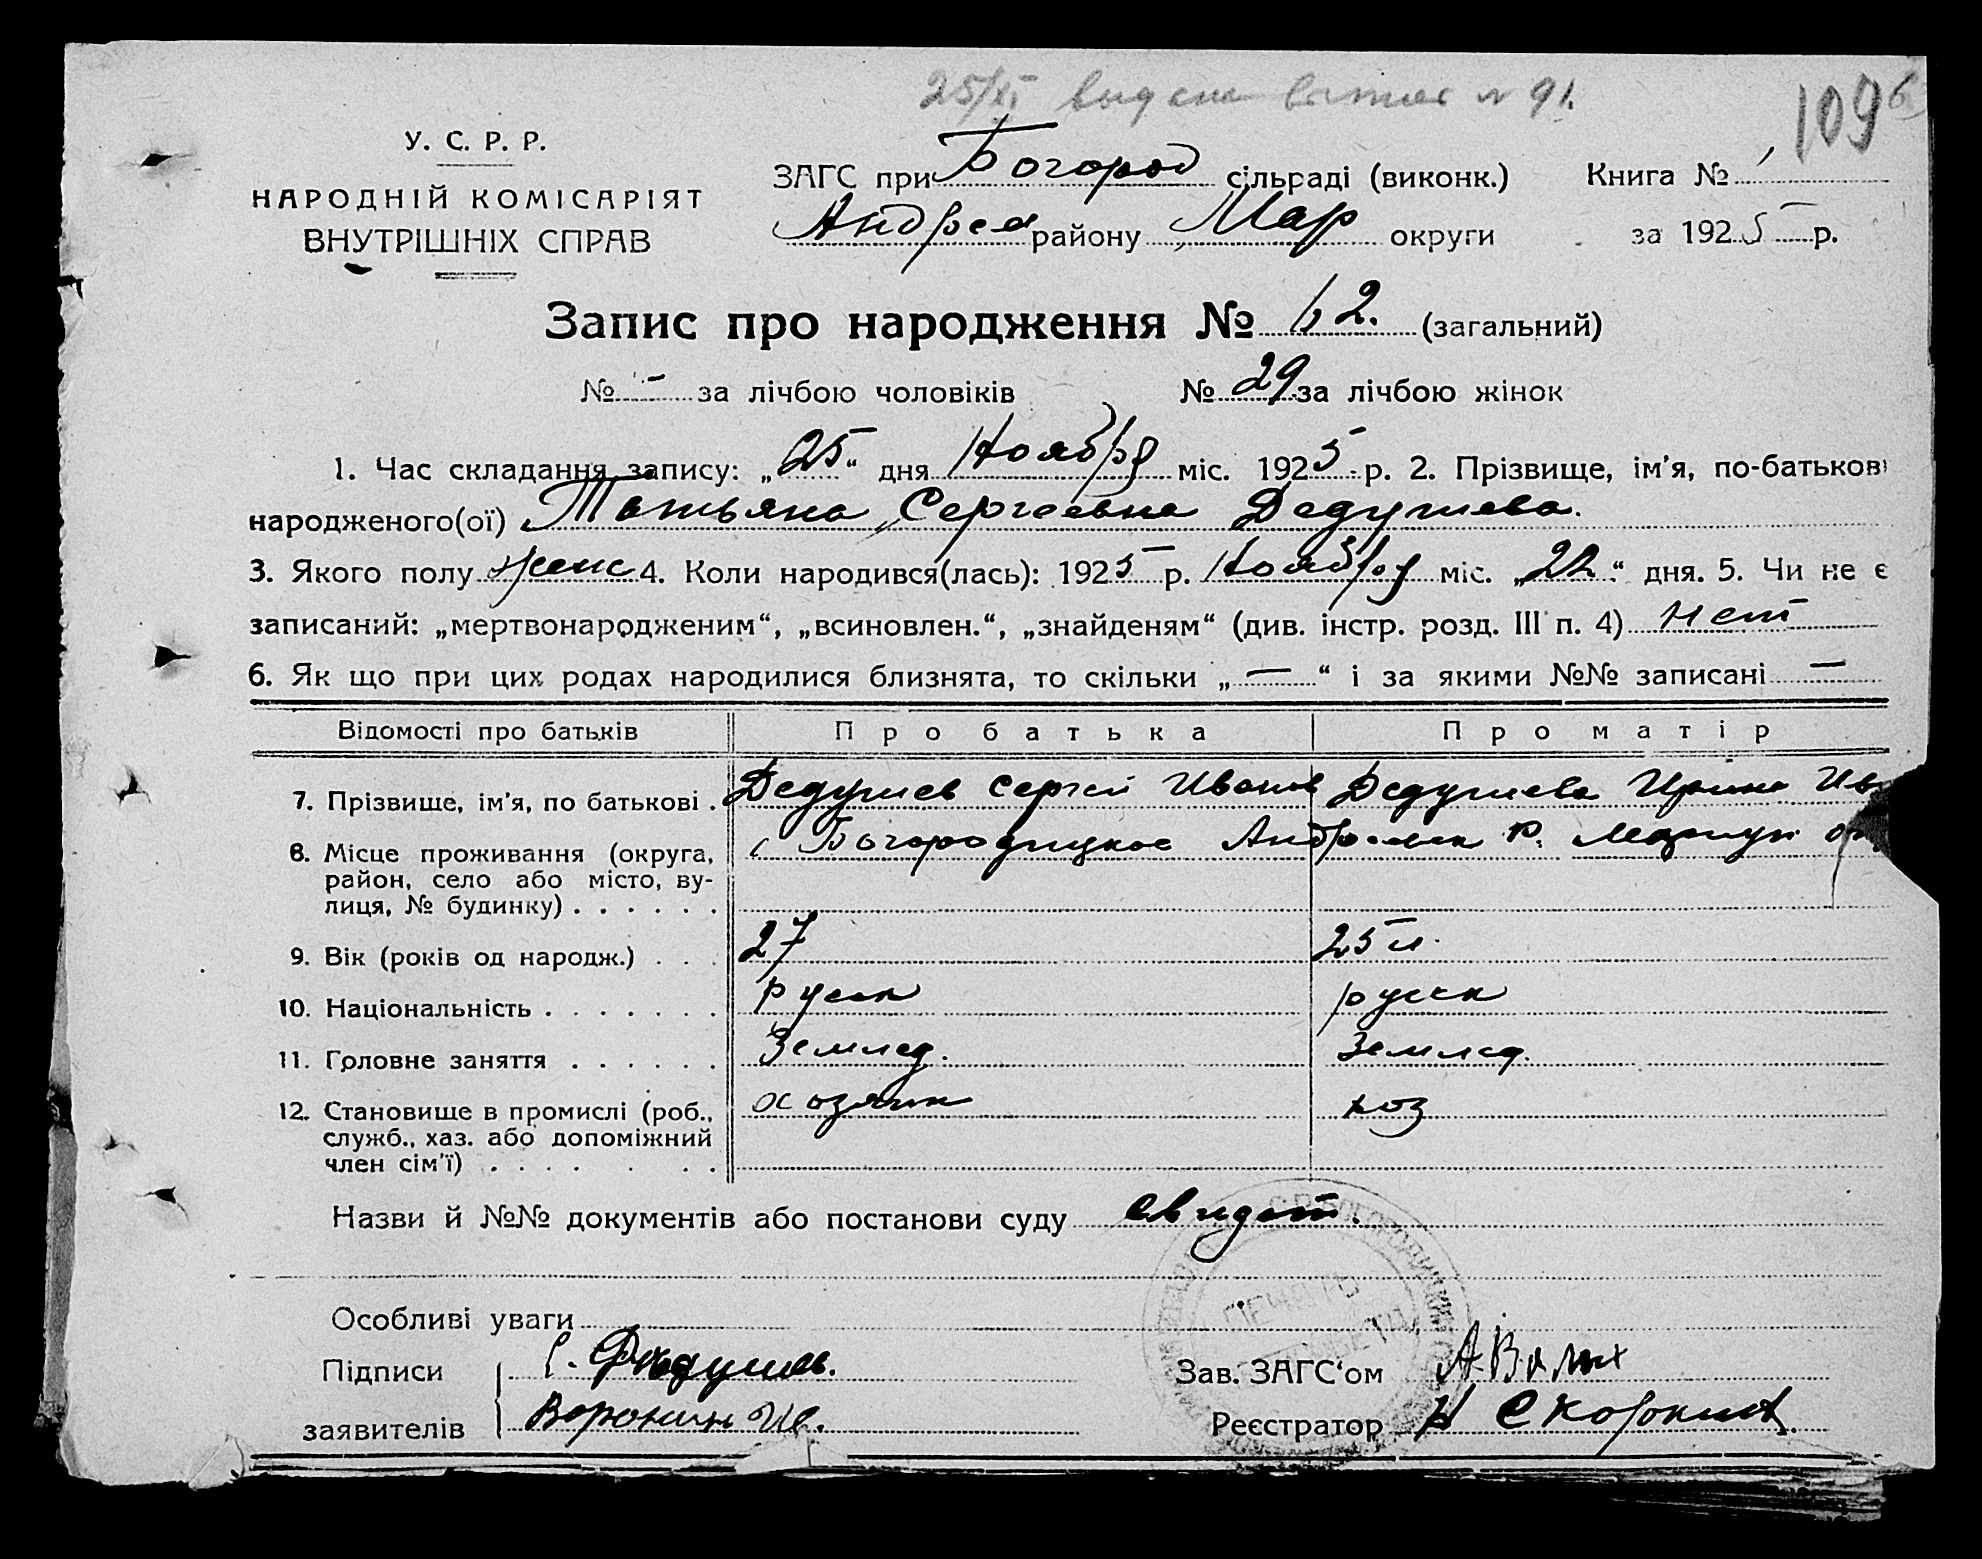 25/XI выдана № 91.
109
У. С. Р. Р.
НАРОДНІЙ КОМІСАРІЯТ
ВНУТРІШНІХ СПРАВ
ЗАГС при Богород сільраді (виконк.) Книга № 1
Андреев району Мар округи за 1925 р.
Запис про народження № 62. (загальний)
№ - за лічбою чоловіків № 29 за лічбою жінок
1. Час складання запису: „25“ дня Ноября міс. 1925 р. 2. Прізвище, ім'я, по-батькові
народженого(ої) Татьяна Сергеевна Дедушева.
3. Якого полу женс 4. Коли народився(лась): 1925 р. Ноября міс. „22“ дня. 5. Чи не є
записаний: „мертвонародженим“, „всиновлен.“, „знайденям“ (див. інстр. розд. III п. 4) нет
6. Як що при цих родах народилися близнята, то скільки „—“ і за якими №№ записані —
Відомості про батьків Про батька Про матір
7. Прізвище, ім'я, по батькові . Дедушев Сергей Иванов Дедушева Ирина Ив
8. Місце проживання (округа, с Богородицкое Андреевск р. Мариуп
район, село або місто, ву-
лиця, № будинку) . . . . . .
9. Вік (років од народж.) . . . 27 25 л.
10. Національність . . . . . . . русск русск
11. Головне заняття . . . . . . Землед. Землед.
12. Становище в промислі (роб., хозяин хоз
служб., хаз. або допоміжний
член сім'ї) . . . . . . .
Назви й №№ документів або постанови суду свидет.
Особливі уваги
Підписи С. Дедушев. Зав. ЗАГС'ом
заявителів Воронин Ив. Реєстратор Н Скорокин
ПЕЧАТЬ